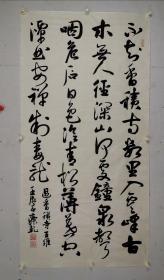 不知香積寺數里入雲峰古
木無人徑深山何處鐘泉聲
咽危石日色冷青松薄暮空
潭曲安禪制毒龍
過香積寺王維